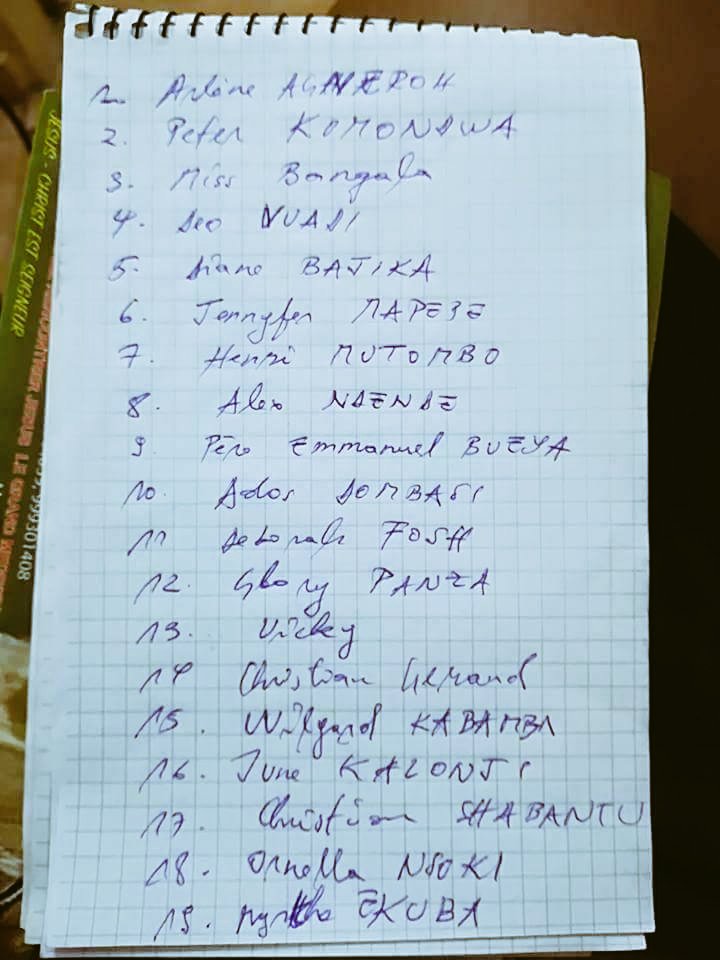 1. Arlène AGANZEROH
2. Peter KOMONDWA
3. Miss Bangala
4. Deo NUADI
5. Diane BATIKA
6. Jennyfer MAPEZE
7. Henri MUTOMBO
8. Alex NDENDE
9. Père Emmanuel BUEYA
10. Ados DOMBASI
11 Deborah FOSH
12. Glory PANZA
13. Vicky
14 Christian Gerand
15. Wilgard KABAMBA
16. June KALONJI
17. Christian SHABANTU
18. Ornella NSOKI
19. Myrtho EKUBA
JESUS-CHRIST EST SEIGNEUR
JESUS LE GRAND
999301408